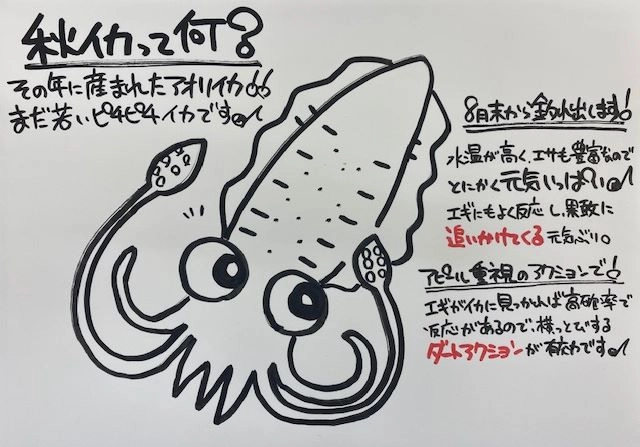 秋イカって何?
その年に産まれたアオリイカ!!
まだ若いピチピチイカです♪
8月末から釣れ出します!
水温が高く、エサも豊富なので
とにかく元気いっぱい♪
エギにもよく反応し、果敢に
追いかけてくる元気ぶり。
アピール重視のアクションで!
エギがイカに見つかれば高確率で
反応があるので、横っとびする
ダートアクションが有効です♪